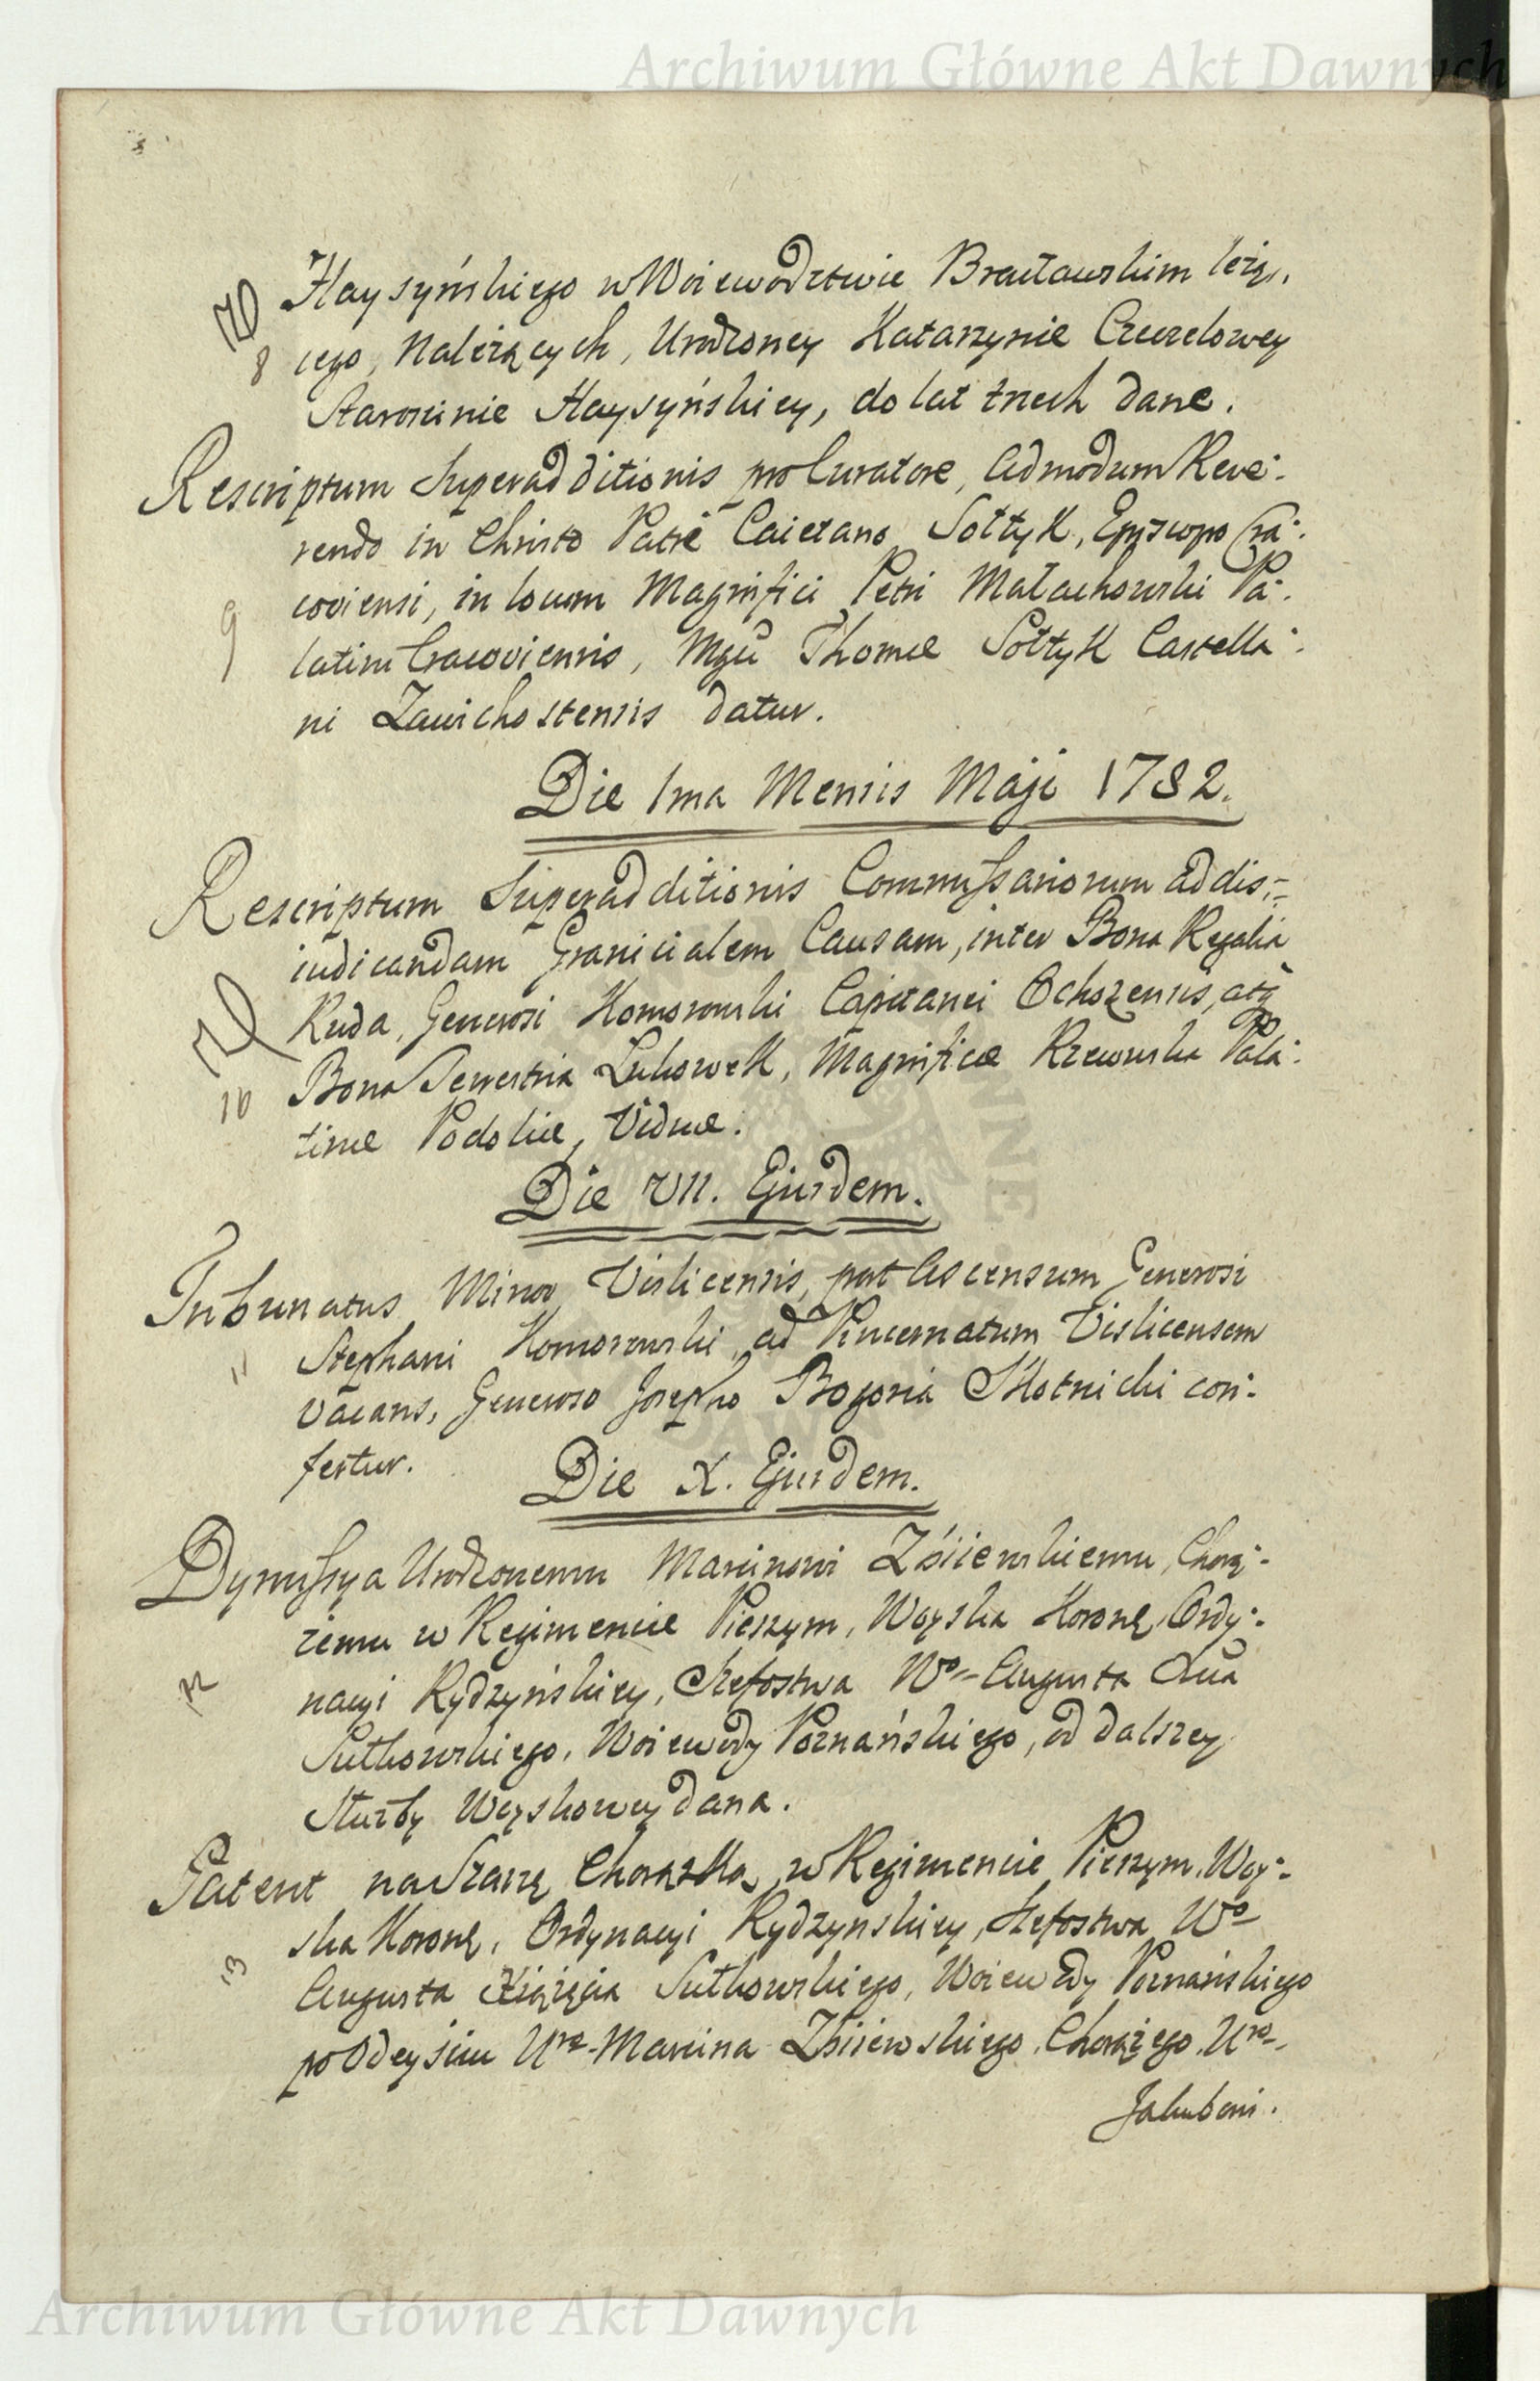 Archiwum Główne Akt Dawnych
Haysyńskiego w Woiewodztwie Bracławskim leżą,
8 cego, Należących, Urodzoney Katarzynie Czeczelowey
Starościnie Haysyńskiey, do lat trzech dane.
Rescriptum Superadditionis pro Curatore, Admodum Reve:
rendo in Christo Patre Caietano Sołtyk, Episcopo Cra:
9 coviensi, in locum Magnifici Petri Małachowski Pa:
latini Cracoviensis, Mgco Thomæ Sołtyk Castella:
ni Zawichostensis datur.
Die 1ma Mensis Maji 1782.
Rescriptum Superadditionis Commissariorum ad dis:
iudicandam Granicialem Causam, inter Bona Regalia
Ruda, Generosi Komorowski Capitanei Ochozensis, atq
10 Bona Terrestria Lukowek, Magnificæ Rzewuska Pala:
tinæ Podoliæ, Viduæ.
Die VII. Ejusdem.
Tribunatus Minor Vislicensis, post Ascensum Generosi
11 Stephani Komorowski ad Pincernatum Vislicensem
vacans, Generoso Josepho Bogoria Skotnicki con:
fertur.
Die X. Ejusdem.
Dymissya Urodzonemu Marcinowi Zbiiewskiemu, Chorą:
żemu w Regimencie Pieszym, Woyska Koronę, Ordy:
12 nacyi Rydzyńskiey, Szefostwa Wo Augusta
Sułkowskiego, Woiewody Poznańskiego, od dalszey
Służby Woyskowey dana.
Patent na Szarżę Chorążka, w Regimencie Pieszym, Woy:
ska Koronę, Ordynacyi Rydzynskiey, Szefostwa Wo
13 Augusta Xiążęcia Sułkowskiego, Woiewody Poznańskiego
po Odeysciu Uro Marcina Zbiiewskiego, Chorążego, Uro
Jakubowi.
Archiwum Główne Akt Dawnych